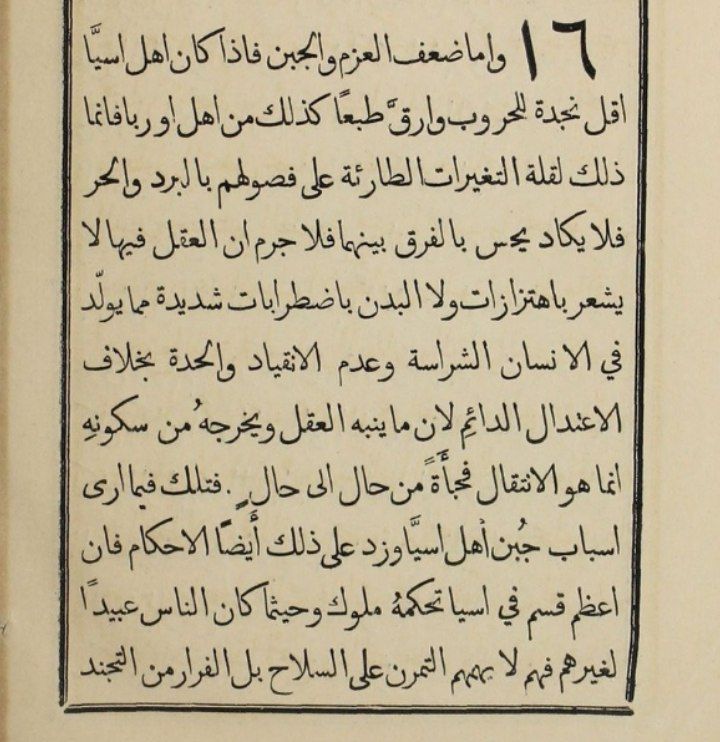 ١٦ واما ضعف العزم والجبن فاذا كان اهل اسيَّا
اقل نجدة للحروب وارقَّ طبعًا كذلك من اهل اوربا فانما
ذلك لقلة التغيرات الطارئة على فصولهم بالبرد والحر
فلا يكاد يحس بالفرق بينهما فلا جرم ان العقل فيها لا
يشعر باهتزازات ولا البدن باضطرابات شديدة مما يولّد
في الانسان الشراسة وعدم الانقياد والحدة بخلاف
الاعتدال الدائمِ لان ما ينبه العقل ويخرجهُ من سكونهِ
انما هو الانتقال فجأَةً من حال الى حالٍ. فتلك فيما ارى
اسباب جُبن أهل اسيَّا وزد على ذلك أَيضًا الاحكام فان
اعظم قسم في اسيا تحكمهُ ملوك وحيثما كان الناس عبيدًا
لغيرهم فهم لا يهمهم التمرن على السلاح بل الفرار من التجند